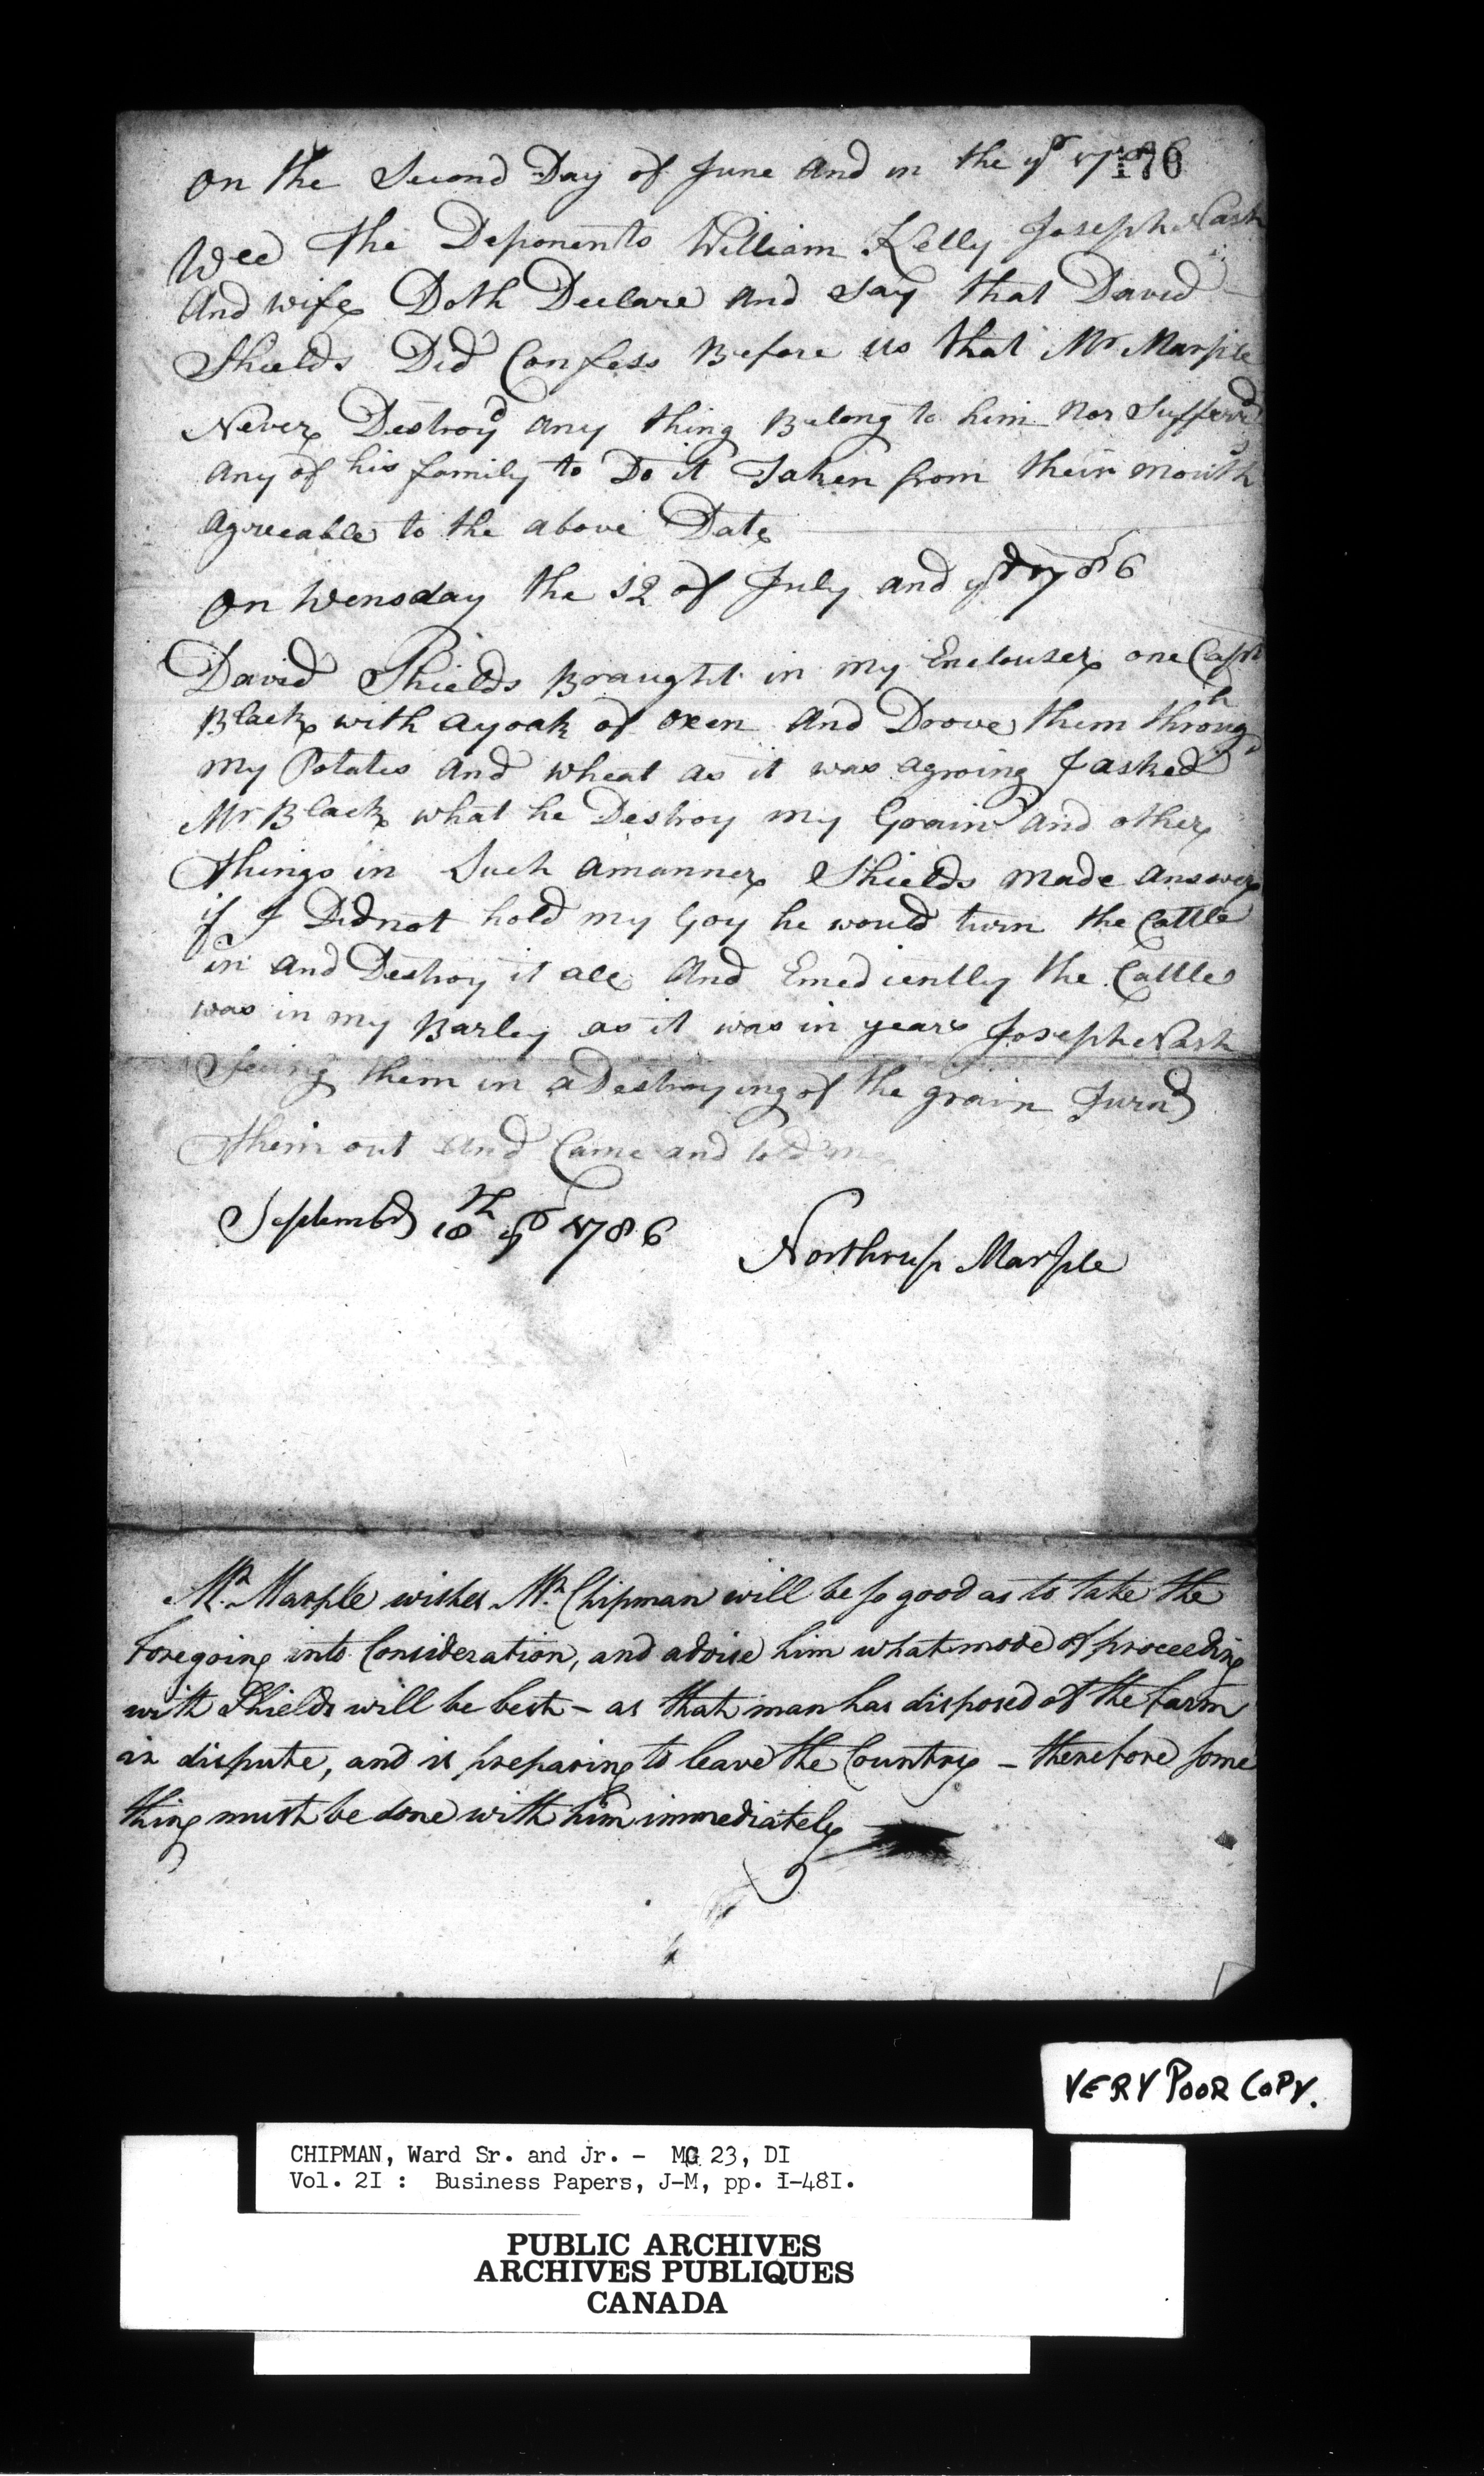 On the Second Day of June And in the yr 1786
176
Wee the Deponents William Kelly Joseph Nash
And wife Doth Declare And Say that David
Shields Did Confess Before us that Mr Marple
Never Destroyd any thing Belong to him Nor Sufferd
any of his family to Do it Taken from their mouth
agreeable to the above Date
On Wensday the 12 of July and yr 1786
David Shields Braught in my Enclouser one Capt
Black with a yoak of oxen And Droove them through
my Potates And wheat as it was agroing I asked
Mr Black what he Destroy my Grain And other
things in Such amanner Shields made answer
if I Did not hold my Goy he would turn the Cattle
in And Destroy it all And Emediently the Cattle
was in my Barley as it was in years Joseph Nash
Seeing them in aDestroying of the grain Turnd
them out And Came and told me
Septembr 18th yr 1786
Northrup Marple
Mr. Marple wishes Mr. Chipman will be so good as to take the
foregoing into Consideration, and advise him what mode of proceeding
with Shields will be best – as that man has disposed of the farm
in dispute, and is preparing to leave the Country – therefore some
thing must be done with him immediately
VERY POOR COPY.
CHIPMAN, Ward Sr. and Jr. - MG 23, DI
Vol. 2I : Business Papers, J-M, pp. I-48I.
PUBLIC ARCHIVES
ARCHIVES PUBLIQUES
CANADA